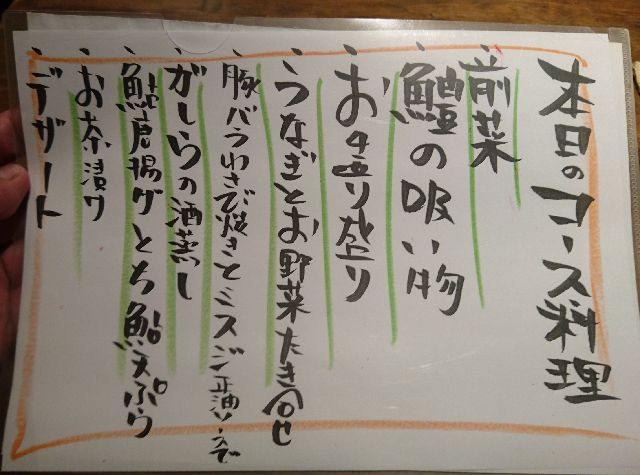 本日のコース料理
・前菜
・鱧の吸い物
・お造り盛り
・うなぎとお野菜たき合せ
・豚バラわさび焼きとミスジ正油ソースで
・がしらの酒蒸し
・鮎唐揚げとち鮎天ぷら
・お茶漬け
・デザート